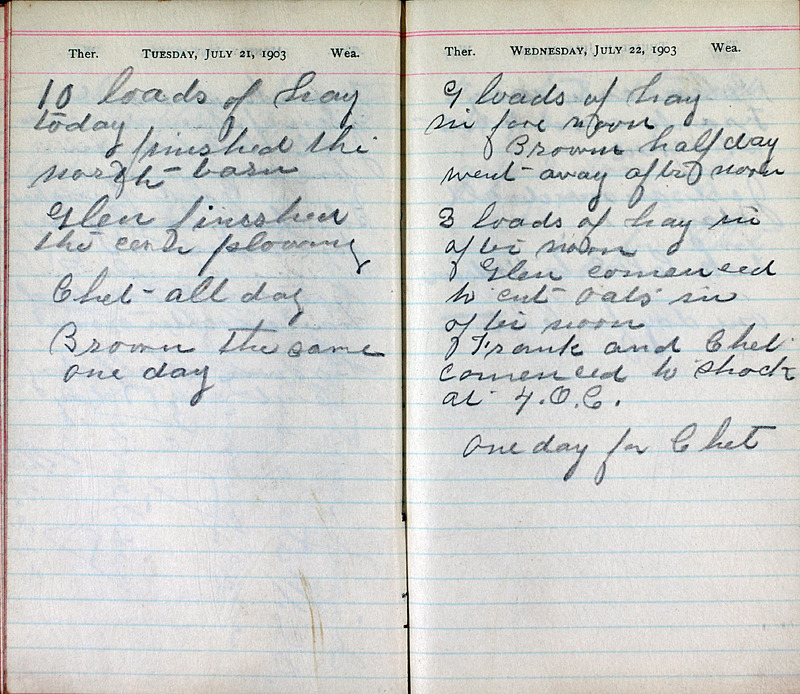 Ther. TUESDAY, JULY 21, 1903 Wea.
10 loads of hay
today
finished the
north barn
Glen finished
the corn plowing
Chet all day
Brown the same
one day
Ther. WEDNESDAY, JULY 22, 1903 Wea.
9 loads of hay
in fore noon
Brown half day
went away after noon
3 loads of hay in
after noon
Glen comenced
to cut oats in
after noon
Frank and Chet
comenced to shock
at 4.O.C.
one day for Chet